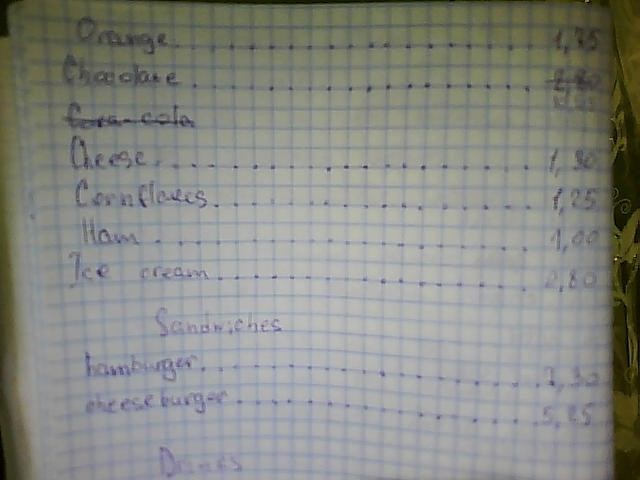 Orange.......................1,75
Chocolate.......................
Coca-cola
Cheese.......................1,30
Cornflakes.......................1,25
Ham.......................1,00
Ice cream.......................2,80
Sandwiches
hamburger.......................
cheeseburger.......................5,25
Drinks